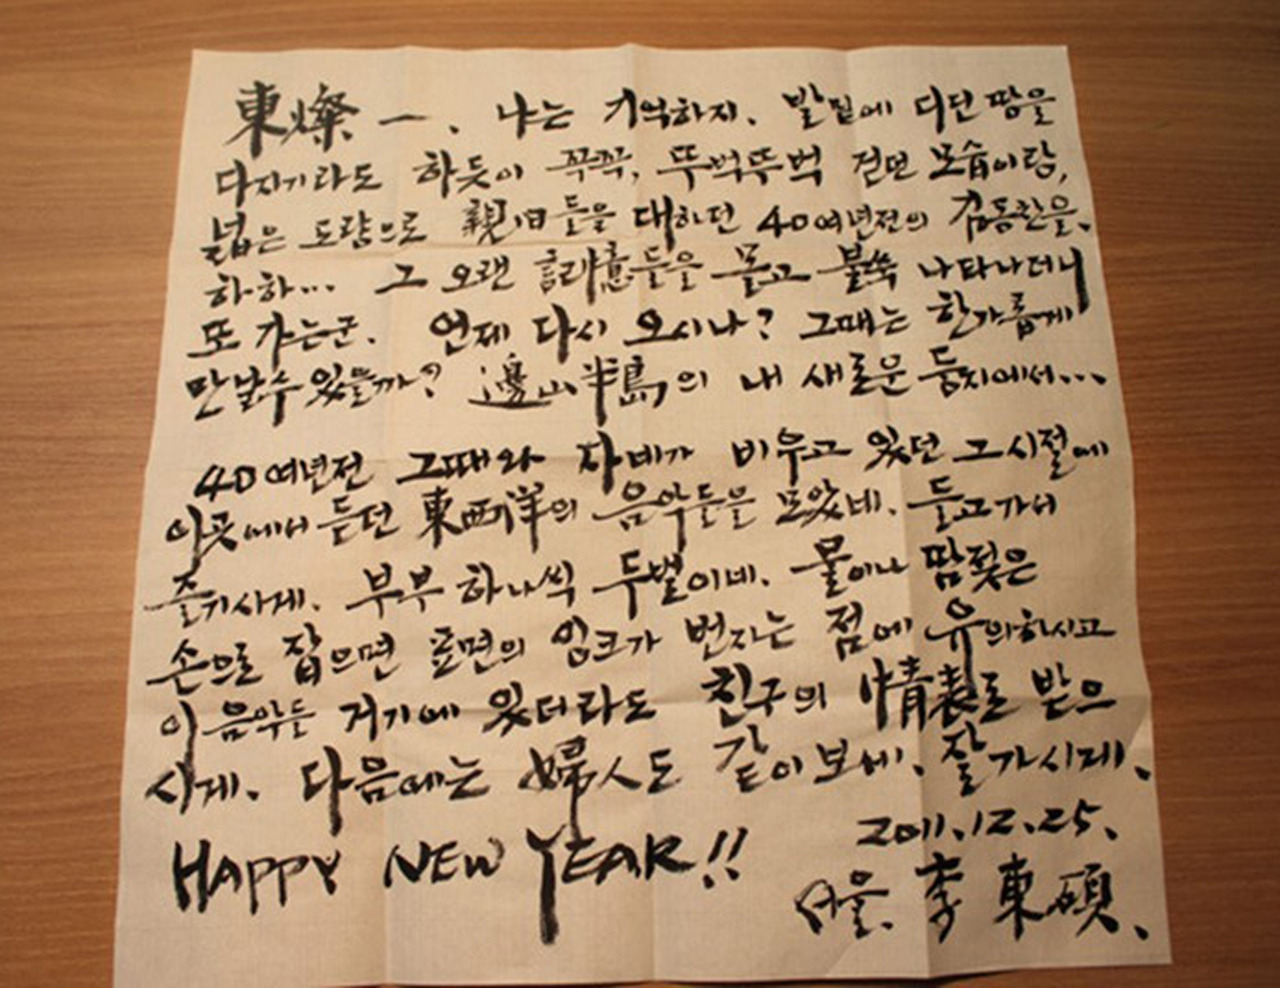 東燦 ―. 나는 기억하지. 발밑에 디딘 땅을
다지기라도 하듯이 꾹꾹, 뚜벅뚜벅 걷던 모습이랑,
넓은 도량으로 親旧들을 대하던 40여년전의 김동찬을.
하하... 그 오랜 들을 몰고 불쑥 나타나더니
또 가는군. 언제 다시 오시나? 그때는 한가롭게
만날수 있을까? 邊山半島의 내 새로운 둥지에서...
40여년전 그때와 자네가 비우고 있던 그 시절에
이곳에서 듣던 東西洋의 음악들을 모았네. 들고가서
즐기시게. 부부 하나씩 두벌이네. 물이나 땀젖은
손으로 잡으면 표면의 잉크가 번지는 점에 유의하시고
이 음악들 거기에 있더라도 친구의 情表로 받으
시게. 다음에는 婦人도 같이 보세. 잘가시게.
HAPPY NEW YEAR!! 2011.12.25.
서울. 李東碩.